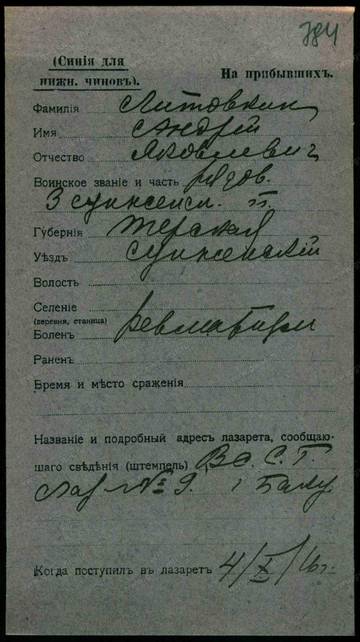 784
(Синія для
нижн. чиновъ).
На прибывшихъ.
Фамилія Литовкин
Имя Андрій
Отчество Яковлевич
Воинское званіе и часть рядов.
3 сунженск. п.
Губернія Терская
Уѣздъ Сунженскій
Волость
Селеніе
(деревня, станица)
Боленъ Ревматизм
Раненъ
Время и мѣсто сраженія
Названіе и подробный адресъ лазарета, сообщаю-
щаго свѣдѣнія (штемпель) В. С. Г.
Лаз № 9. г Баку
Когда поступилъ въ лазаретъ 4/X/16 г.